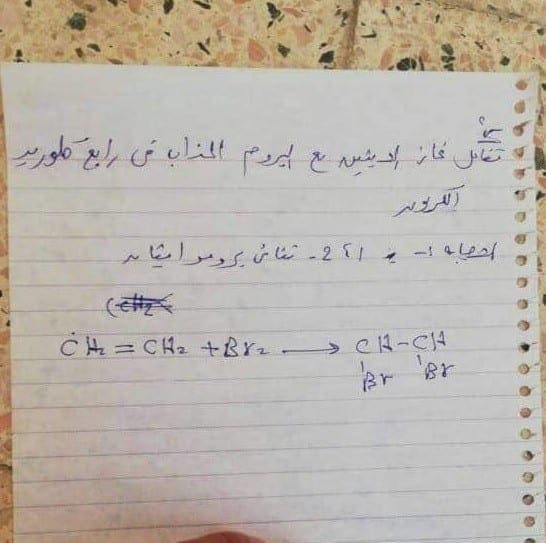 س/
تفاعل غاز الاثيلين مع البروم المذاب في رابع كلوريد
الكربون
الاجابة 1- 1،2- ثنائي برومو ايثان
CH2 = CH2 + Br2 ⟶ CH-CH
Br Br